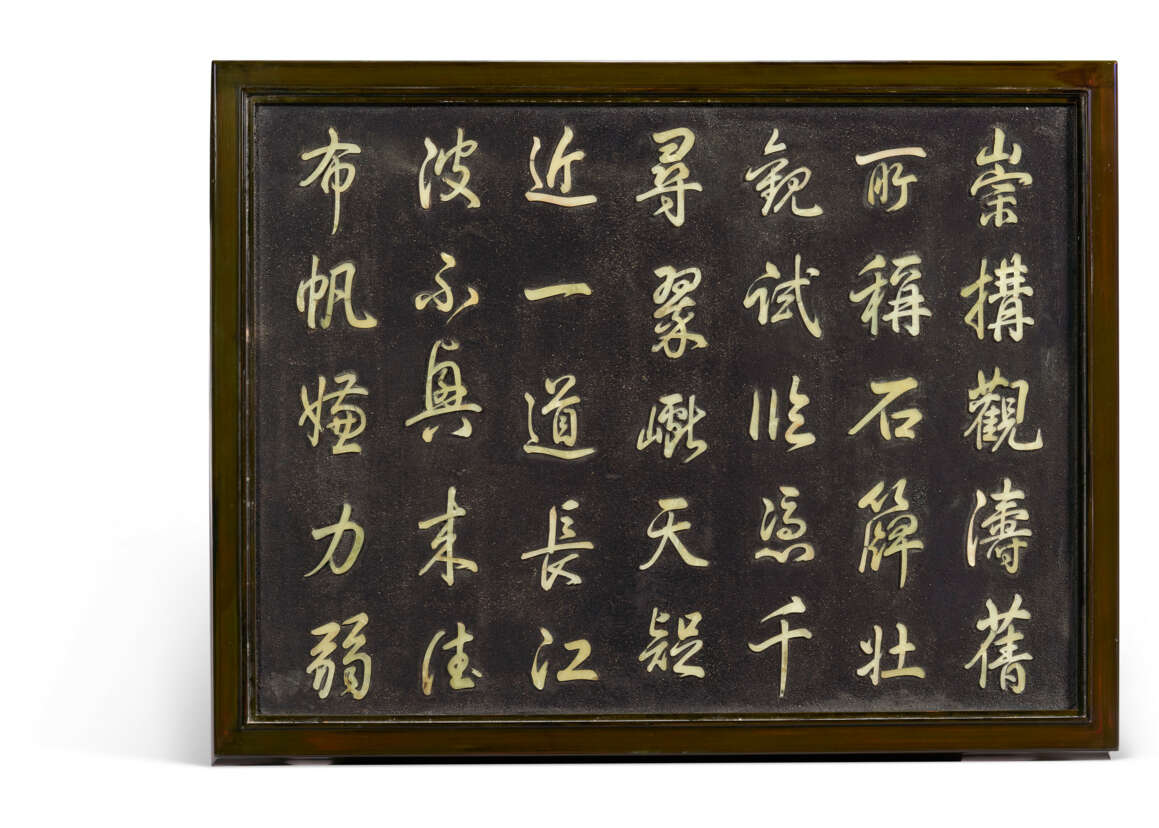 崇構觀濤舊
所稱石簰壯
觀試臨憑千
尋翠巘天疑
近一道長江
波不興來往
布帆嫌力弱